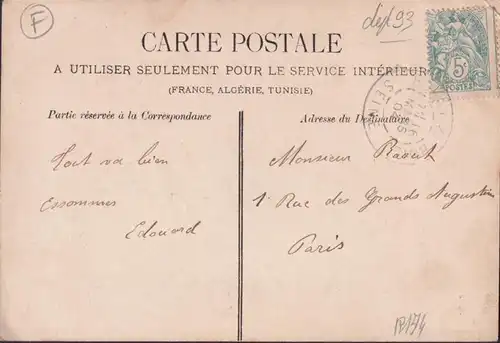 F
dept 93
CARTE POSTALE
A UTILISER SEULEMENT POUR LE SERVICE INTÉRIEUR
(FRANCE, ALGÉRIE, TUNISIE)
Partie réservée à la Correspondance
Adresse du Destinataire
5c
POSTES
SEINE
Tout va bien
Essommes
Edouard
Monsieur Raoult
1 Rue des Grands Augustins
Paris